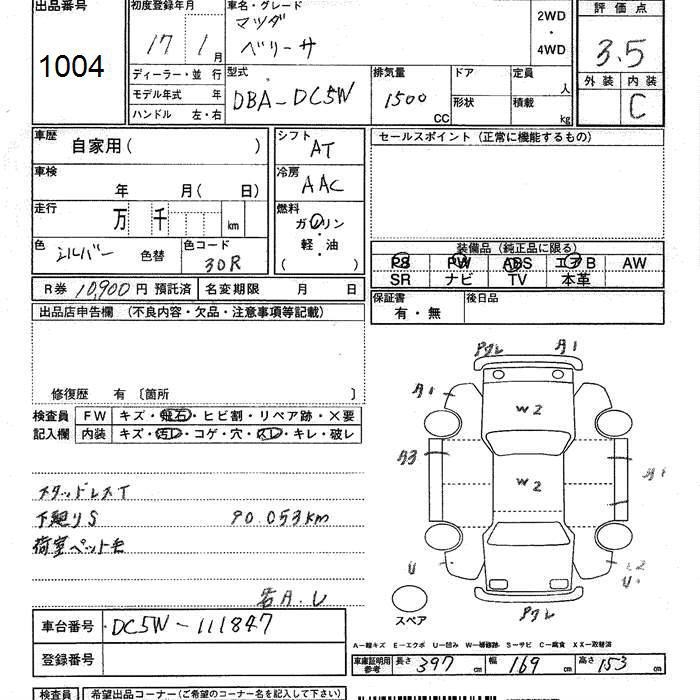 出品番号
1004
初度登録年月
17 1 月
車名・グレード
マツダ
ベリーサ
2WD
・
4WD
評価点
3.5
外装 内装
C
ディーラー・並 行
モデル年式 年
ハンドル 左・右
型式
DBA-DC5W
排気量
1500
CC
ドア
形状
定員
人
積載
kg
車歴
自家用( )
シフト
AT
セールスポイント (正常に機能するもの)
車検
年 月( 日)
冷房
AAC
走行
万 千 km
燃料
ガソリン
軽・油
( )
色
シルバー 色替
色コード
30R
装備品 (純正品に限る)
PS PW ABS エアB AW
SR ナビ TV 本革
R券 10,900円 預託済 名変期限 月 日
保証書
有・無
後日品
出品店申告欄 (不良内容・欠品・注意事項等記載)
修復歴 有 〔箇所 〕
検査員
記入欄
FW キズ・飛石・ヒビ割・リペア跡・×要
内装 キズ・汚レ・コゲ・穴・スレ・キレ・破レ
スタッドレスT
下廻りS 90.053km
荷室ペット毛
各A.U
A1
A1
W2
A3
W2
U
スペア
車台番号 DC5W-111847
登録番号
A-線キズ E-エクボ U-凹み W-補修跡 S-サビ C-腐食 XX-取替済
車庫証明用
参考
長さ 397 cm 幅 169 cm 高さ 153 cm
検査員 希望出品コーナー(ご希望のコーナー名を記入して下さい)